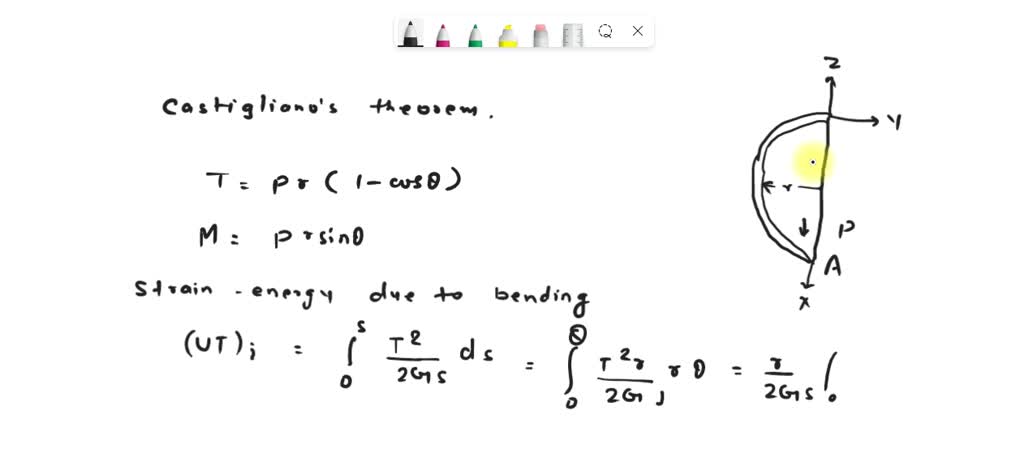 Castigliono's theorem.
T = Pr (1 - cosθ)
M = Prsinθ
Strain - energy due to bending
(UT)i = ∫₀ˢ T²/2GS ds = ∫₀^θ T²r/2GJ rθ = r/2GS ∫₀
Z
Y
r
P
A
X